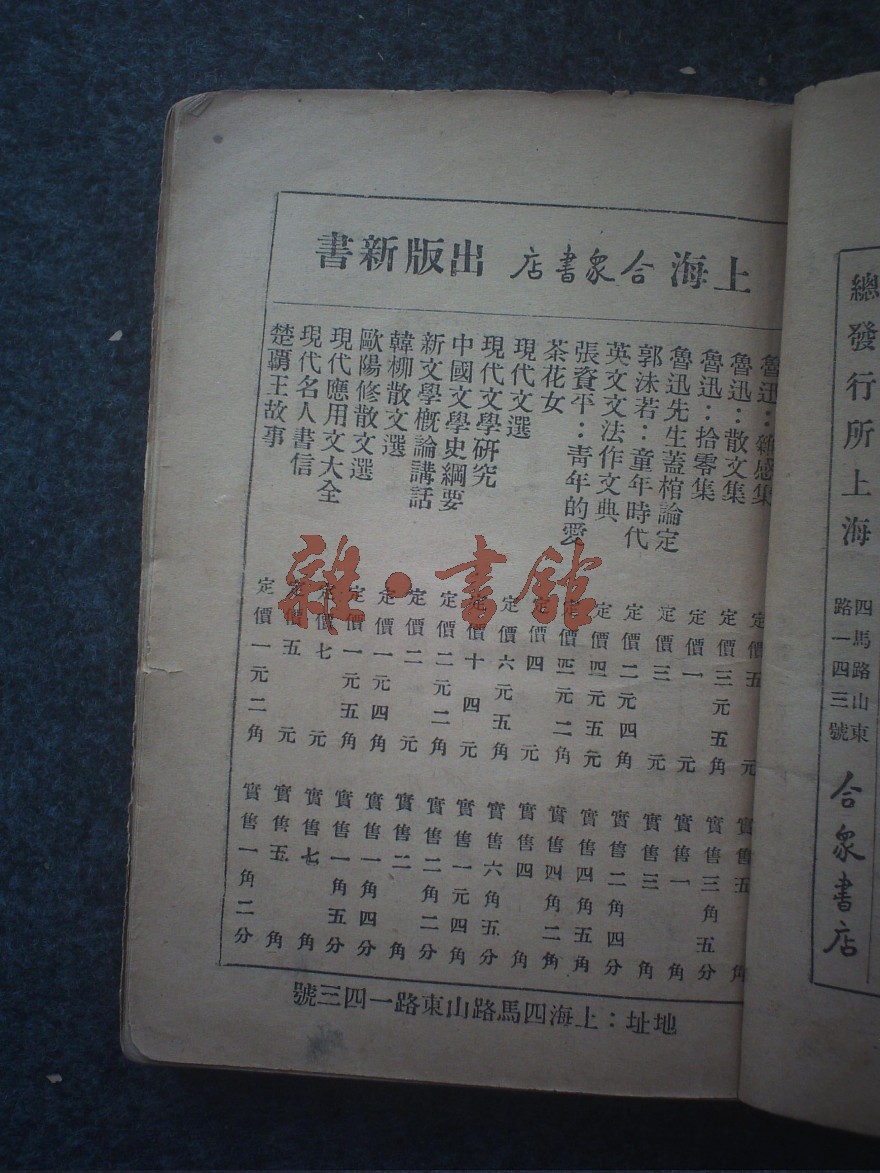 上海合眾書店出版新書
魯迅：雜感集 定價五元 實售五角
魯迅：散文集 定價三元五角 實售三角五分
魯迅：拾零集 定價一元 實售一角
魯迅先生蓋棺論定 定價三元 實售三角
郭沫若：童年時代 定價二元四角 實售二角四分
英文文法作文典 定價四元五元 實售四角五分
張資平：青年的愛 定價四元二角 實售四角二角
茶花女 定價四元 實售四角
現代文選 定價六元五角 實售六角五分
現代文學研究 定價十四元 實售一元四角
中國文學史綱要 定價二元二角 實售二角二分
新文學概論講話 定價二元 實售二角
韓柳散文選 定價一元四角 實售一角四分
歐陽修散文選 定價一元五角 實售一角五分
現代應用文大全 定價七元 實售七角
現代名人書信 定價五元 實售五角
楚霸王故事 定價一元二角 實售一角二分
地址：上海四馬路山東路一四三號
總發行所上海
四馬路山東
路一四三號
合眾書店
雜·書館